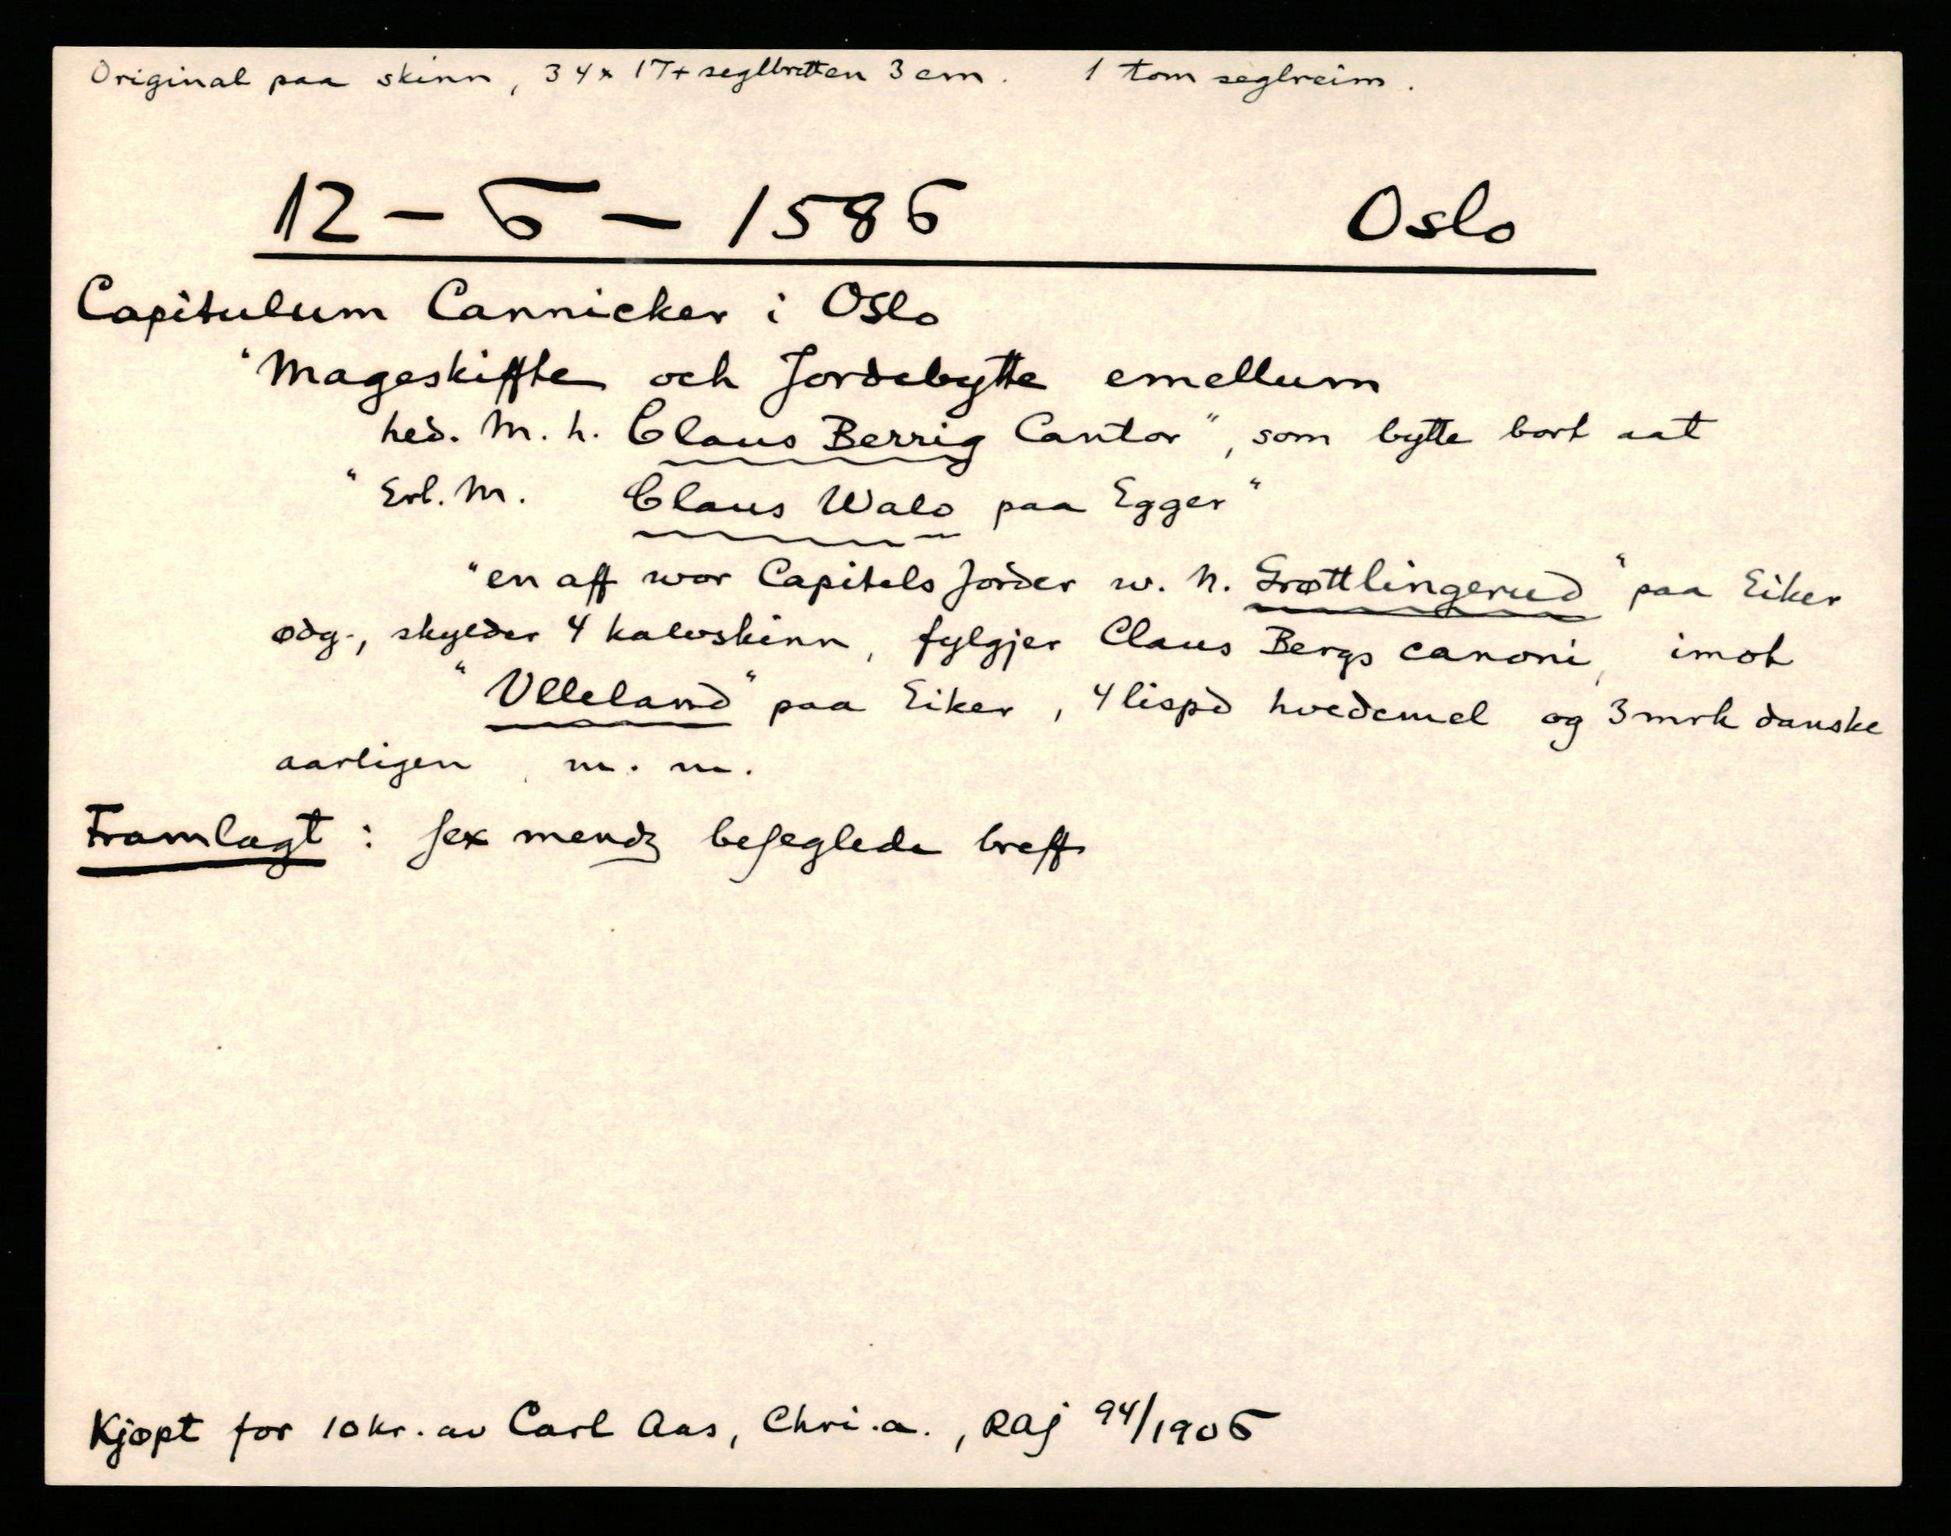 Original paa skinn, 34 x 17 + seglbretten 3 cm. 1 tom seglreim.
12 – 6 – 1586 Oslo
Capitulum Cannicker i Oslo
"Mageskiffte och Jordebytte emellum
hed. M. h. Claus Berrig Cantor", som bytte bort aat
"Erl. M. Claus Walo paa Egger"
"en aff wor Capitels Jorder w. N. Grøttlingerud" paa Eiker
ødg., skylder 4 kalvskinn, fylgjer Claus Bergs canoni, imot
"Ulleland" paa Eiker, 4 lispd hvedemel og 3 mrk danske
aarligen m. m.
Framlagt: sex mendz beseglede breff
Kjøpt for 10 kr. av Carl Aas, Chri.a., RAj 94/1906